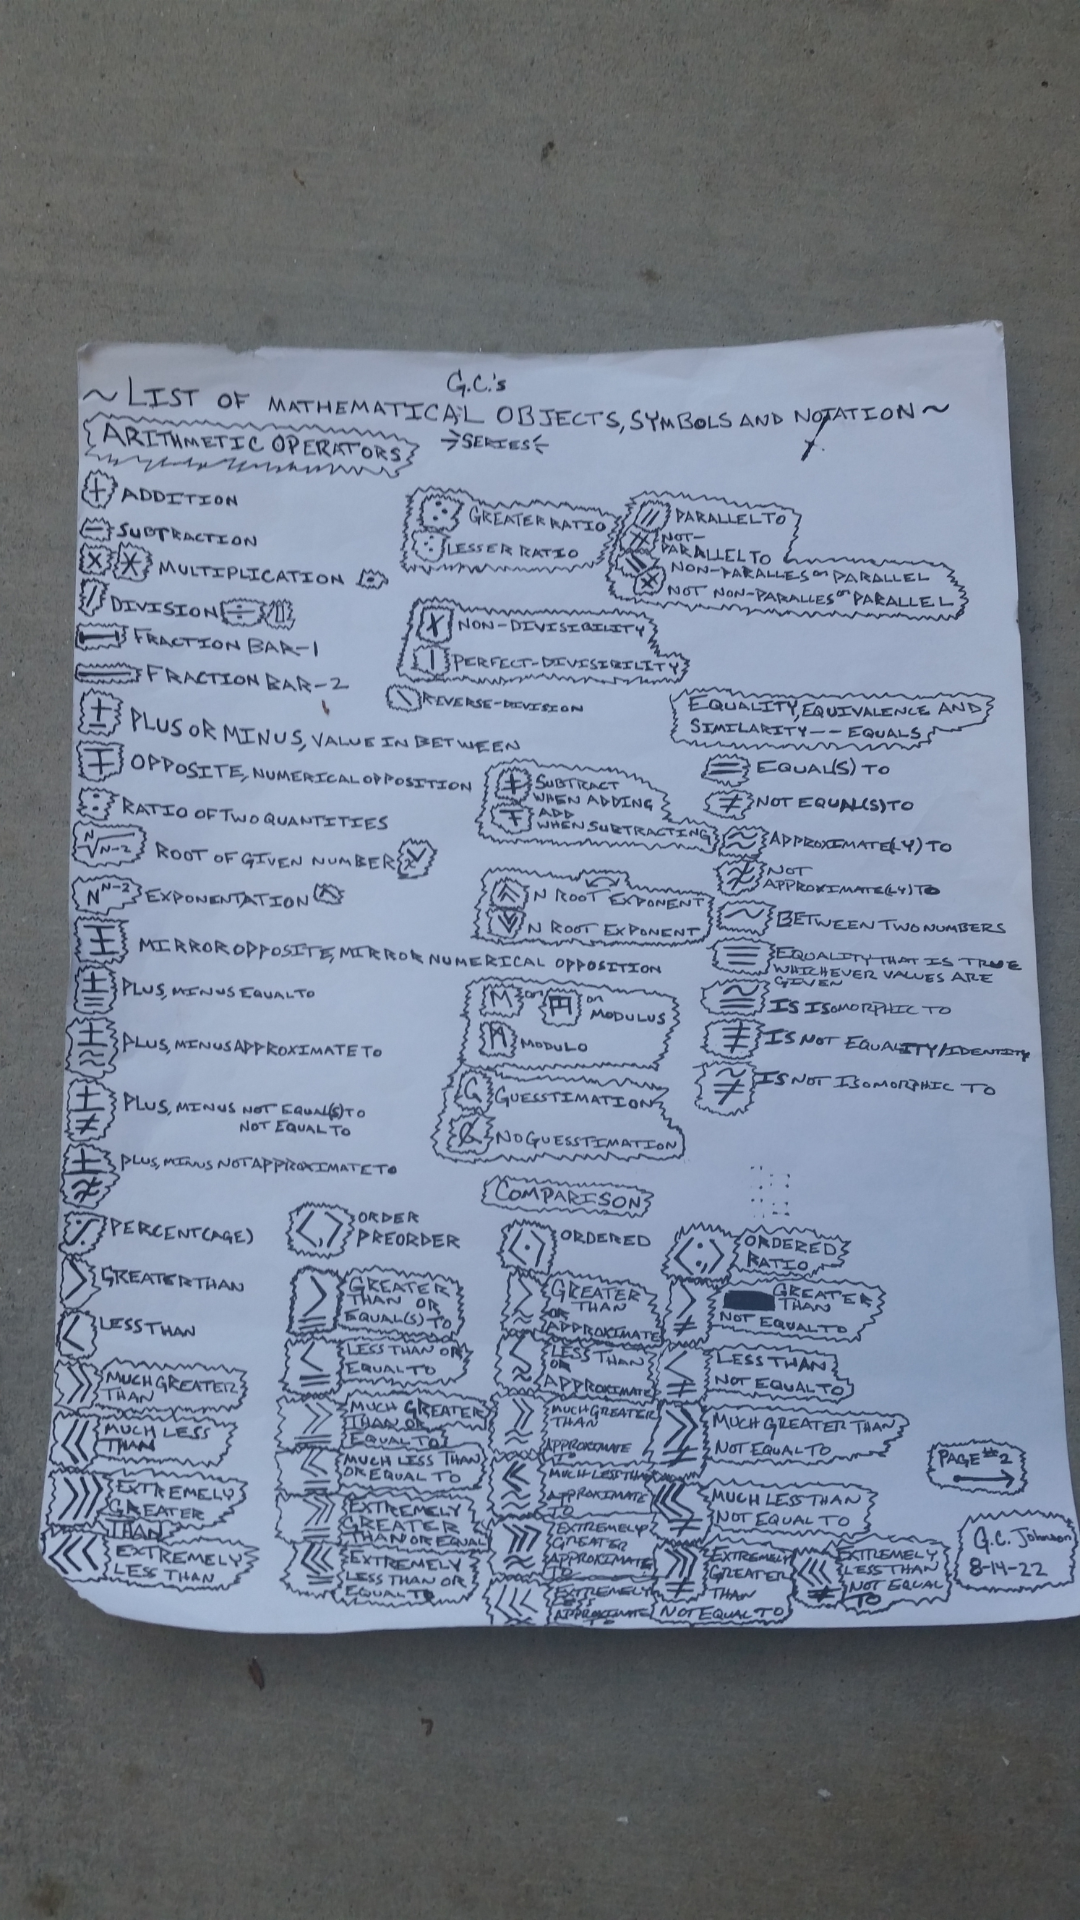 G.C.'s
~ LIST OF MATHEMATICAL OBJECTS, SYMBOLS AND NOTATION ~
ARITHMETIC OPERATORS
SERIES
+ ADDITION
− SUBTRACTION
× * MULTIPLICATION ·
/ DIVISION ÷
FRACTION BAR-1
FRACTION BAR-2
± PLUS OR MINUS, VALUE IN BETWEEN
∓ OPPOSITE, NUMERICAL OPPOSITION
: RATIO OF TWO QUANTITIES
ROOT OF GIVEN NUMBER
N^N-2 EXPONENTATION
MIRROR OPPOSITE, MIRROR NUMERICAL OPPOSITION
PLUS, MINUS EQUAL TO
PLUS, MINUS APPROXIMATE TO
PLUS, MINUS NOT EQUAL(S) TO
NOT EQUAL TO
PLUS, MINUS NOT APPROXIMATE TO
GREATER RATIO
LESSER RATIO
// PARALLEL TO
NOT-
PARALLEL TO
NON-PARALLES or PARALLEL
NOT NON-PARALLES or PARALLEL
NON-DIVISIBILITY
| PERFECT-DIVISIBILITY
\ REVERSE-DIVISION
SUBTRACT
WHEN ADDING
ADD
WHEN SUBTRACTING
N ROOT EXPONENT
N ROOT EXPONENT
M or or MODULUS
MODULO
G GUESSTIMATION
NO GUESSTIMATION
EQUALITY, EQUIVALENCE AND
SIMILARITY -- EQUALS
= EQUAL(S) TO
≠ NOT EQUAL(S) TO
≈ APPROXIMATE(LY) TO
≉ NOT
APPROXIMATE(LY) TO
~ BETWEEN TWO NUMBERS
≡ EQUALITY THAT IS TRUE
WHICHEVER VALUES ARE
GIVEN
IS ISOMORPHIC TO
≢ IS NOT EQUALITY/IDENTITY
IS NOT ISOMORPHIC TO
COMPARISON
PERCENT(AGE)
> GREATER THAN
< LESS THAN
MUCH GREATER
THAN
MUCH LESS
THAN
EXTREMELY
GREATER
THAN
EXTREMELY
LESS THAN
ORDER
PREORDER
GREATER
THAN OR
EQUAL(S) TO
LESS THAN OR
EQUAL TO
MUCH GREATER
THAN OR
EQUAL TO
MUCH LESS THAN
OR EQUAL TO
EXTREMELY
GREATER
THAN OR EQUAL
EXTREMELY
LESS THAN OR
EQUAL TO
ORDERED
GREATER
THAN
OR
APPROXIMATE
LESS THAN
OR
APPROXIMATE
MUCH GREATER
THAN
APPROXIMATE
TO
MUCH LESS THAN
APPROXIMATE
TO
EXTREMELY
GREATER
APPROXIMATE
TO
EXTREMELY
APPROXIMATE
ORDERED
RATIO
GREATER
THAN
NOT EQUAL TO
LESS THAN
NOT EQUAL TO
MUCH GREATER THAN
NOT EQUAL TO
MUCH LESS THAN
NOT EQUAL TO
EXTREMELY
GREATER
THAN
NOT EQUAL TO
EXTREMELY
LESS THAN
NOT EQUAL
TO
PAGE #2
G.C. Johnson
8-14-22